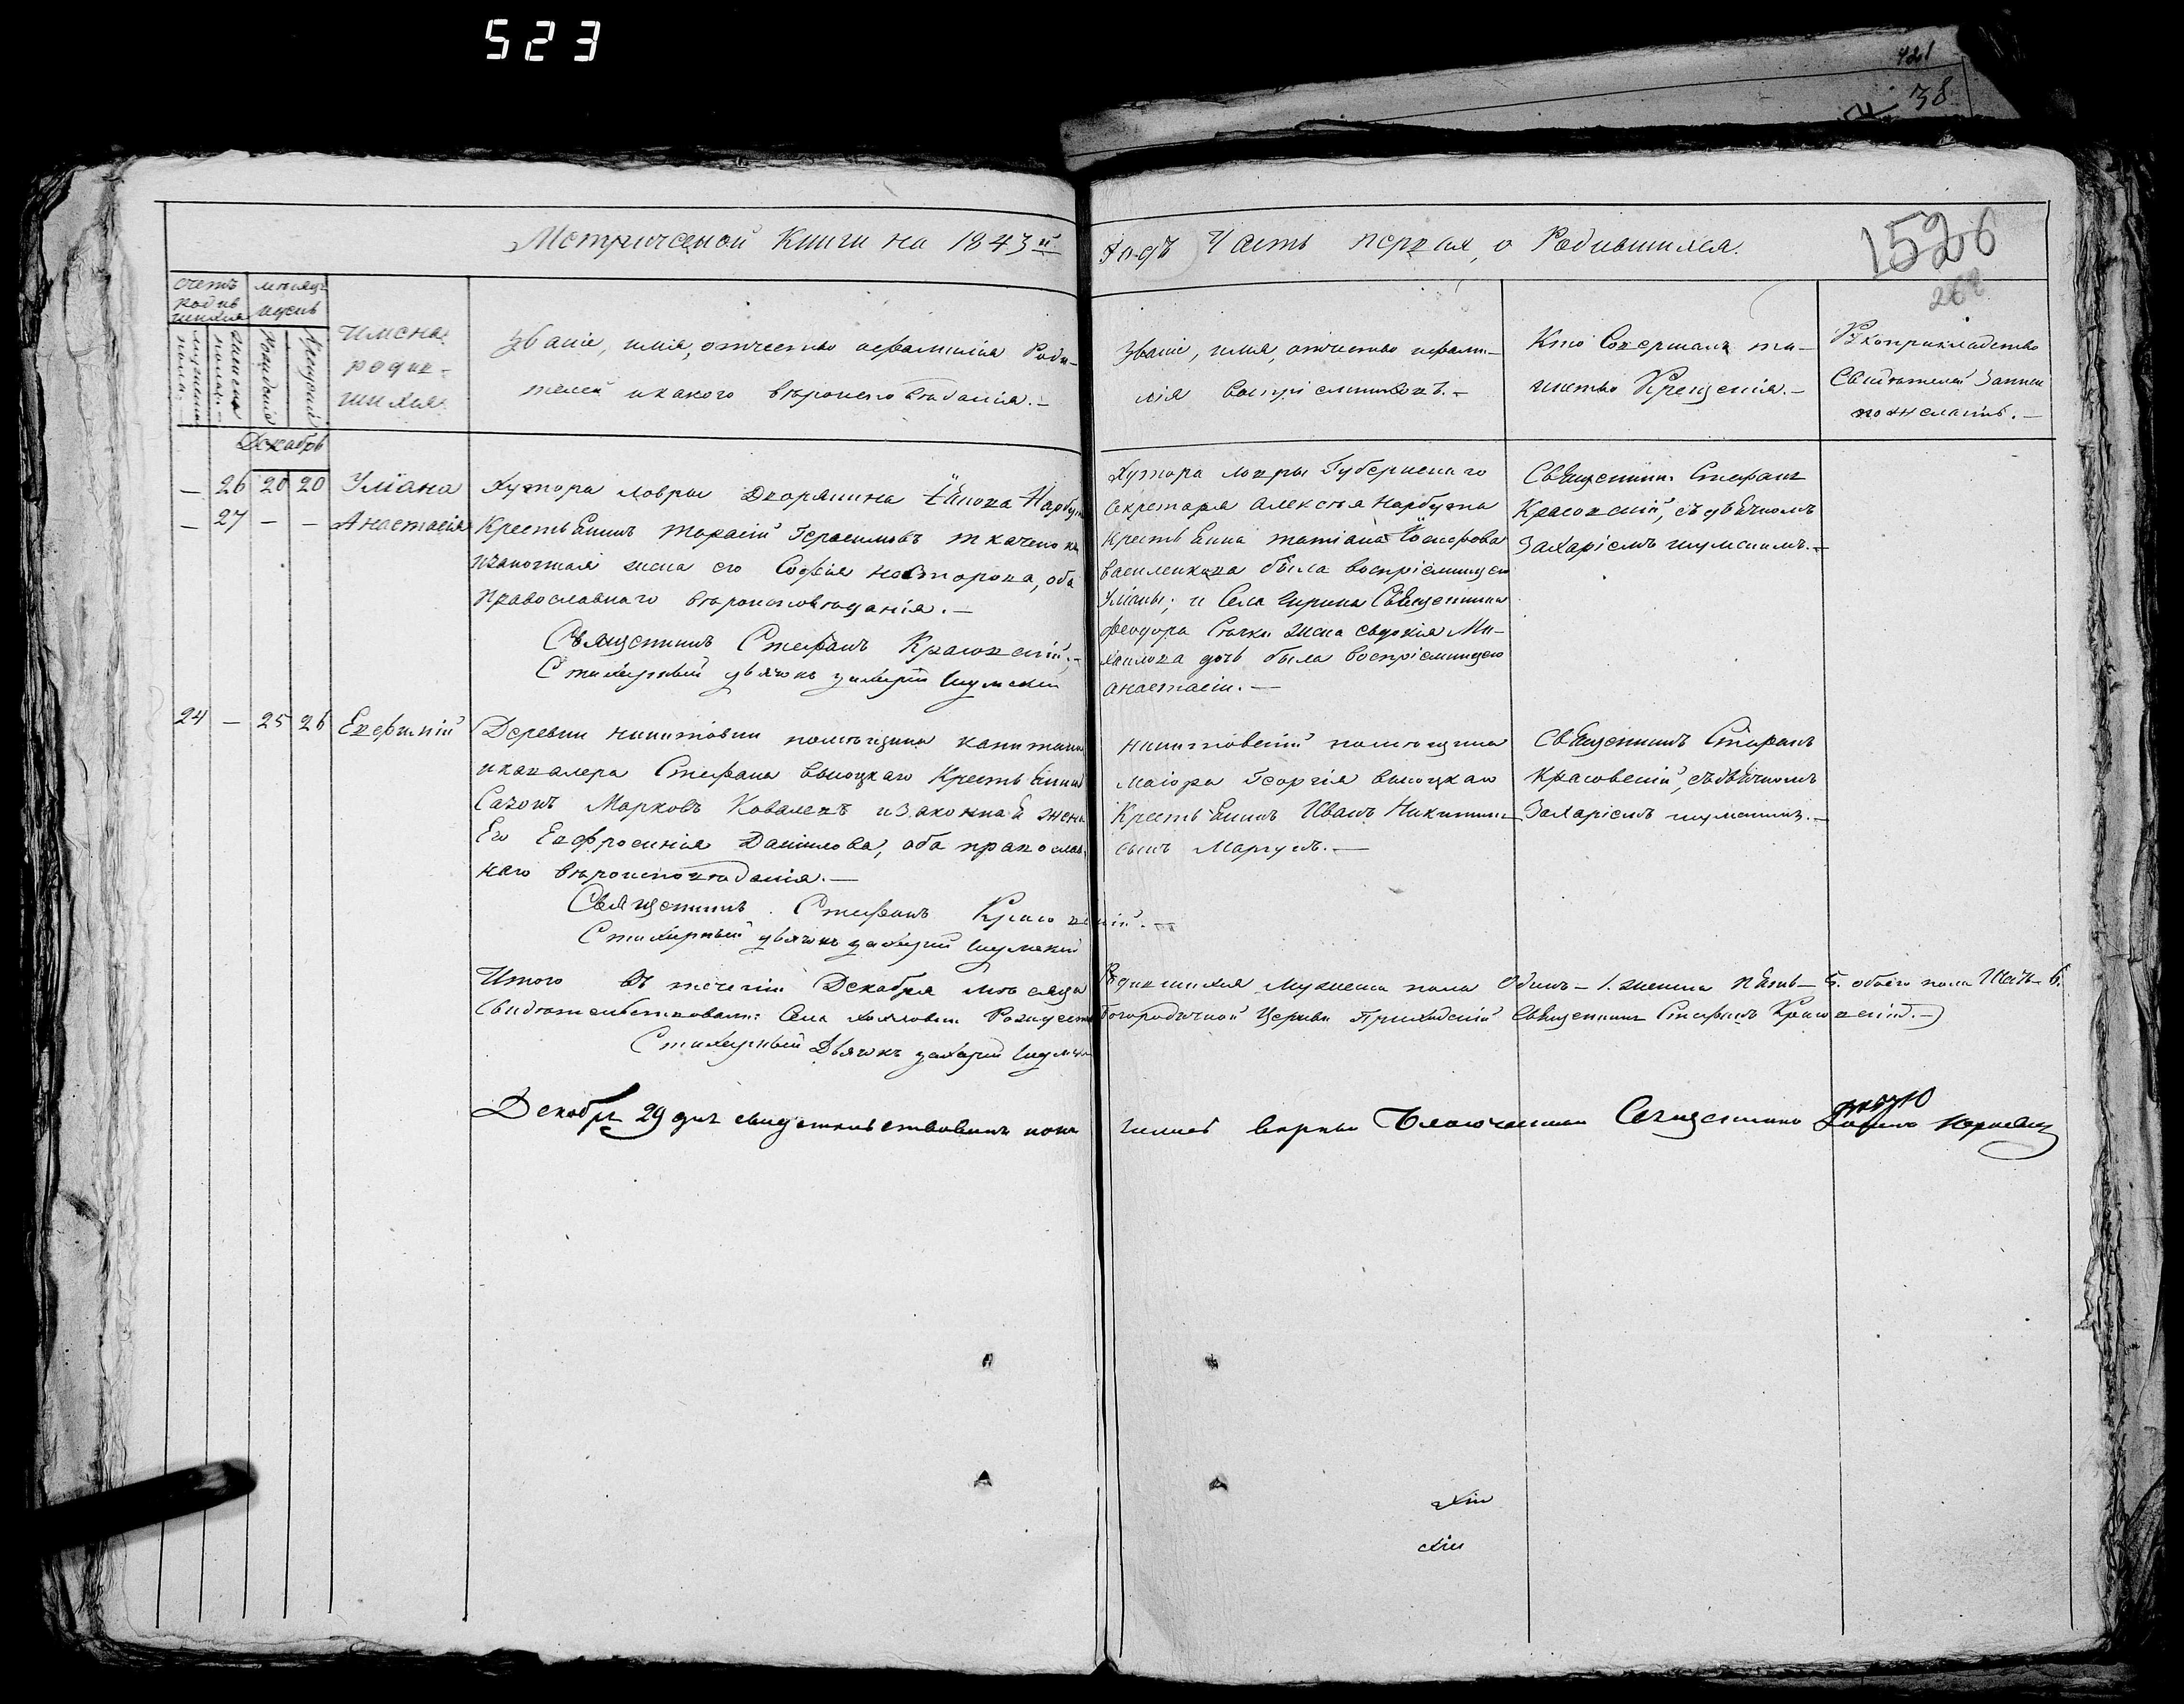 523
421
38
Метрической Книги на 1843й
Годъ Часть первая, о Родившихся.
1526
262
Счетъ родившихся
Месяцъ и день
мужеска пола.
женска пола.
Рожденія
Крещенія
Имена родившихся.
Званіе, имя, отчество и фамилія Роди-
телей и какого вѣроисповѣданія.-
Званіе, имя, отчество и фами-
лія воспріемниковъ.-
Кто Совершалъ та-
инство Крещенія.-
Рукоприкладство
Свидѣтелей Записи
по желанію.-
Декабрь
- 26 20 20 Уліана
Хутора Лавры Дворянина Нарбута
- 27 - - Анастасія
Крестьянинъ Тарасій Герасимовъ Ткаченко и
законная жена его Софія Несторова, оба
Православнаго вѣроисповѣданія.-
Священникъ Стефанъ Красовскій.-
Стихарный дьячокъ Захарій Шумскій
Хутора Лавры Губернскаго
Секретаря Алексѣя Нарбута
Крестьянка Татіана
Василенкова была воспріемницею
Уліаны; и Села Священника
Феодора жена Евдокія Ми-
хаилова дочь была воспріемницею
Анастасіи.-
Священникъ Стефанъ
Красовскій, съ дьячкомъ
Захаріемъ Шумскимъ.-
24 - 25 26 Евфимій
Деревни помѣщика капитана
и кавалера Стефана Высоцкаго Крестьянинъ
Сазонъ Марковъ Ковалевъ и законная жена
Его Евфросинія Даніилова, оба православ-
наго вѣроисповѣданія.-
Священникъ Стефанъ Красовскій.-
Стихарный дьячокъ Захарій Шумскій
помѣщика
Маіора Георгія Высоцкаго
Крестьянинъ Иванъ Никитинъ
сынъ
Священникъ Стефанъ
Красовскій, съ дьячкомъ
Захаріемъ Шумскимъ.-
Итого въ теченіи Декабря мѣсяца Родившихся мужеска пола Одинъ-1. женска Пять-5. обоего пола Шесть-6.
Свидѣтельствовали: Села Рождество Богородичной Церкви Приходскій Священникъ Стефанъ Красовскій.-
Стихарный Дьячокъ Захарій Шумскій
Декабря 29 дня свидѣтельствовалъ Благочинный Священникъ